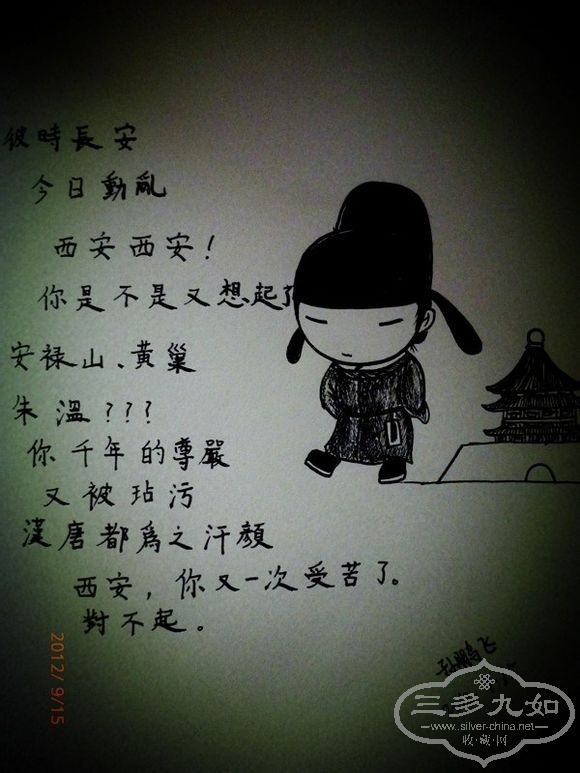 彼時長安
今日動亂
西安西安！
你是不是又想起了
安禄山、黄巢
朱溫？？？
你千年的尊嚴
又被玷污
漢唐都爲之汗顔
西安，你又一次受苦了。
對不起。
2012/ 9/15
三多九如
www.silver-china.net
收·藏·网